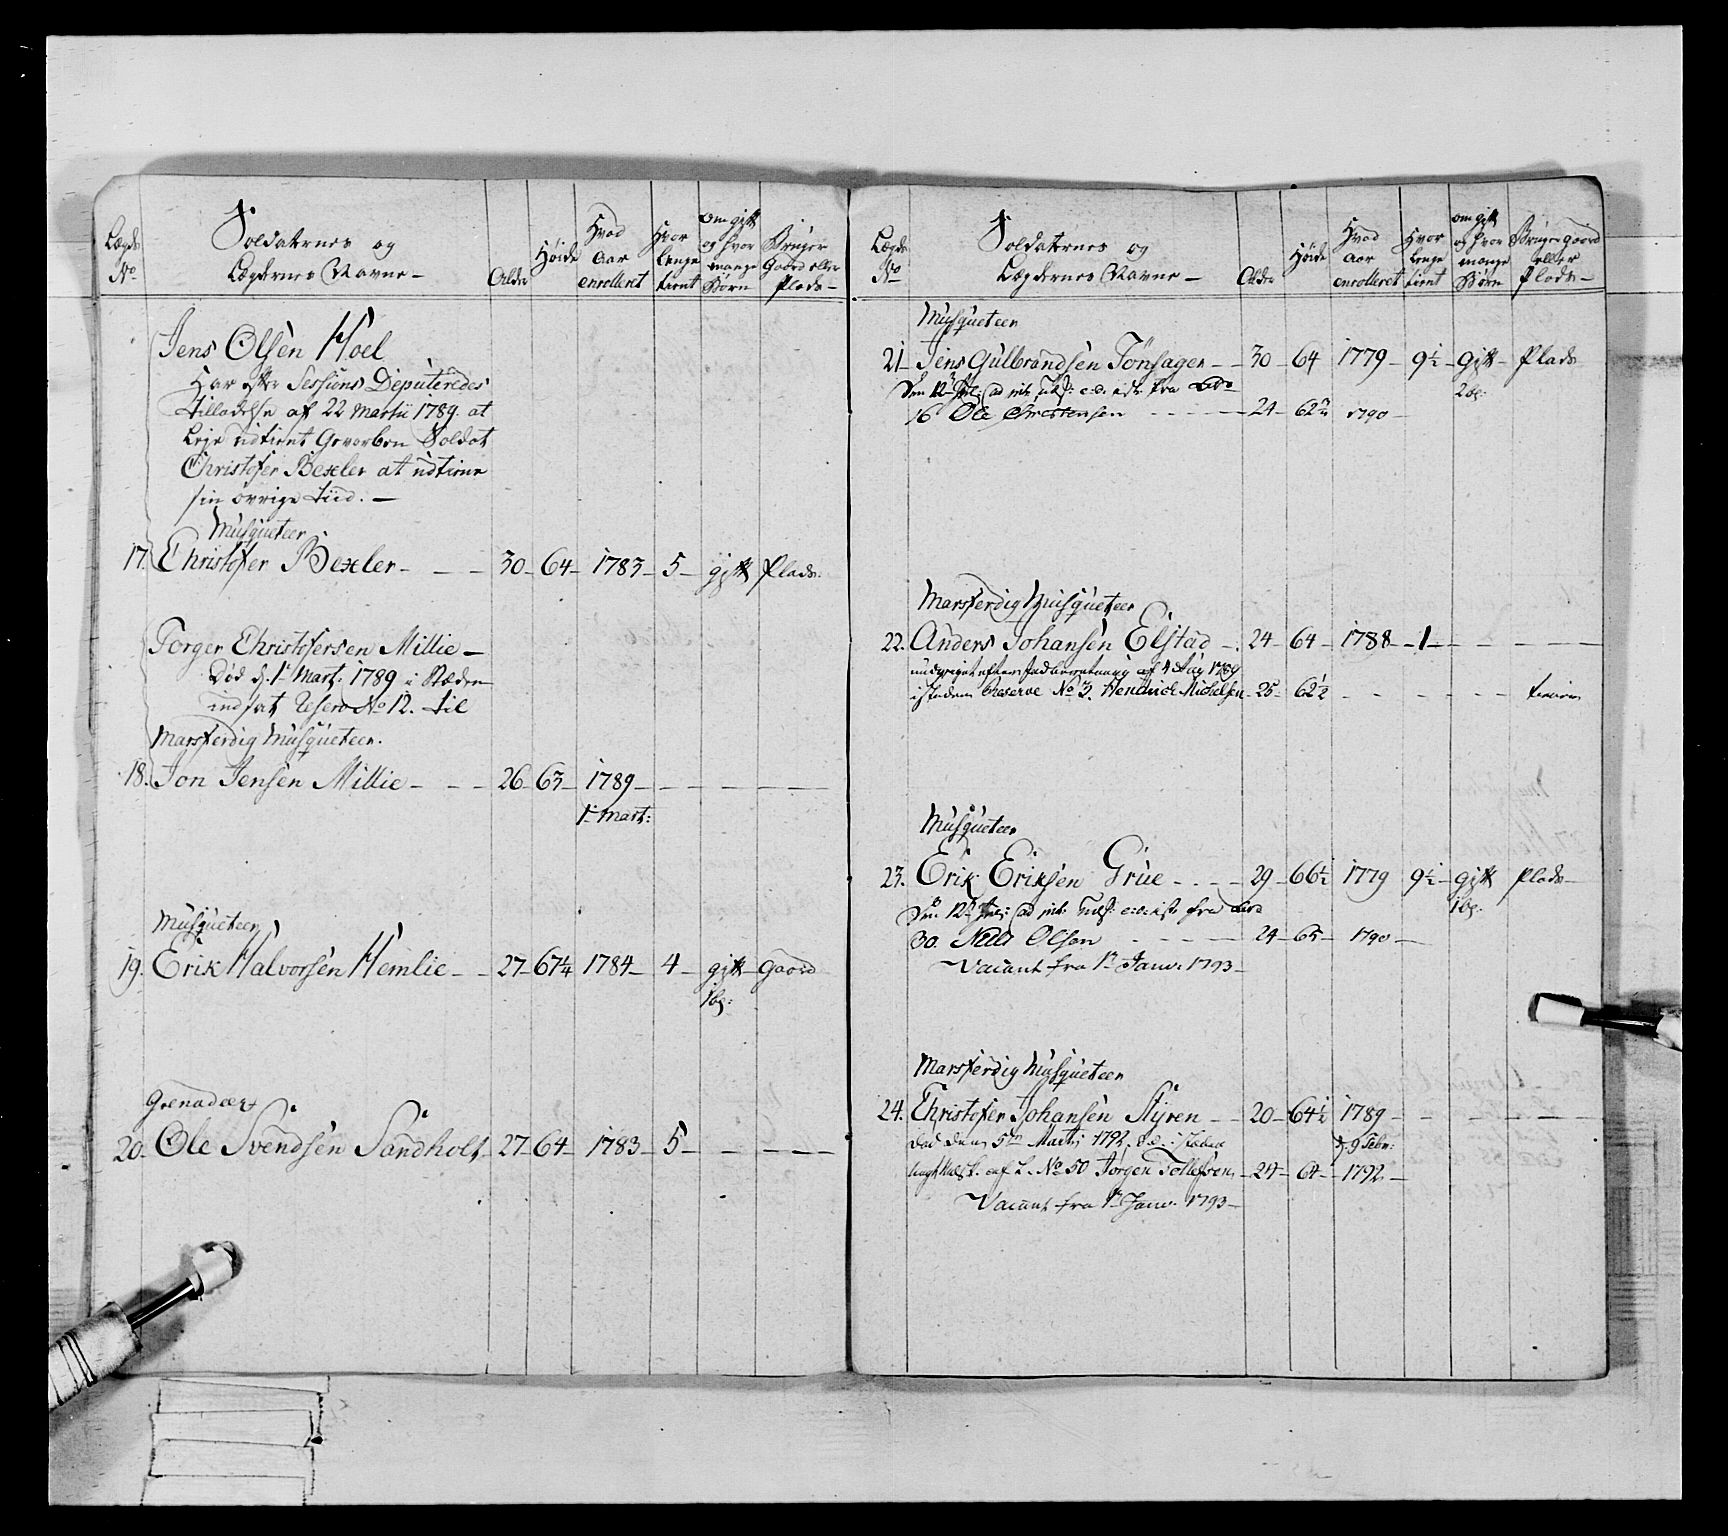 Lægds No
Soldaternes og Lægdernes Navne
Alder
Høide
Hvad Aar enrolleret
Hvor lenge tient
om gift og hvor mange Børn
Bruger Gaard eller Plads
Jens Olsen Hoel
Har efter Sessions Deputeredes
Tilladelse af 22 Martii 1789 at
Leje udtient Gevorben Soldat
Christofer Bexeler at udtiene
sin øvrige tiid.
Musqueteer
17. Christofer Bexeler 30 64 1783 5 gift Plads
Torger Christofersen Millie
Død d. 1 Mart: 1789 i Stæden
indsat Reserv No 12. til
Marsferdig Musqueteer.
18. Jon Jensen Millie 26 63 1789
1 Mart:
Musqueteer
19. Erik Halvorsen Hemlie 27 67¼ 1784 4 gift Gaard
1 b:
Grenadeer
20. Ole Svendsen Sandholt 27 64 1783 5
Lægds No
Soldaternes og Lægdernes Navne
Alder
Høide
Hvad Aar enrolleret
Hvor lenge tient
om gift og hvor mange Børn
Bruger Gaard eller Plads
Musqueteer
21 Jens Gulbrandsen Tønsager 30 64 1779 9½ gift Plads
2 b:
Den 12 fra
16 Ole Christensen 24 62 1790
Marsferdig Musqueteer
22. Anders Johansen Elstad 24 64 1788 1
af 4 May 1789
isteden Reserve No 3. Hendrick Michelsen 25 62½
Musqueteer
23. Erik Eriksen Grue 29 66½ 1779 9½ gift Plads
1 b:
Den 12 fra
30. Niels Olsen 24 65 1790
Vacant fra 1 Janv: 1793
Marsferdig Musqueteer
24. Christofer Johansen Styren 20 64½ 1789
Død den 5te Martj 1792. d. 9 Febr:
af L. No 50 Jørgen Tollefsen 24 64 1792
Vacant fra 1 Janv: 1793